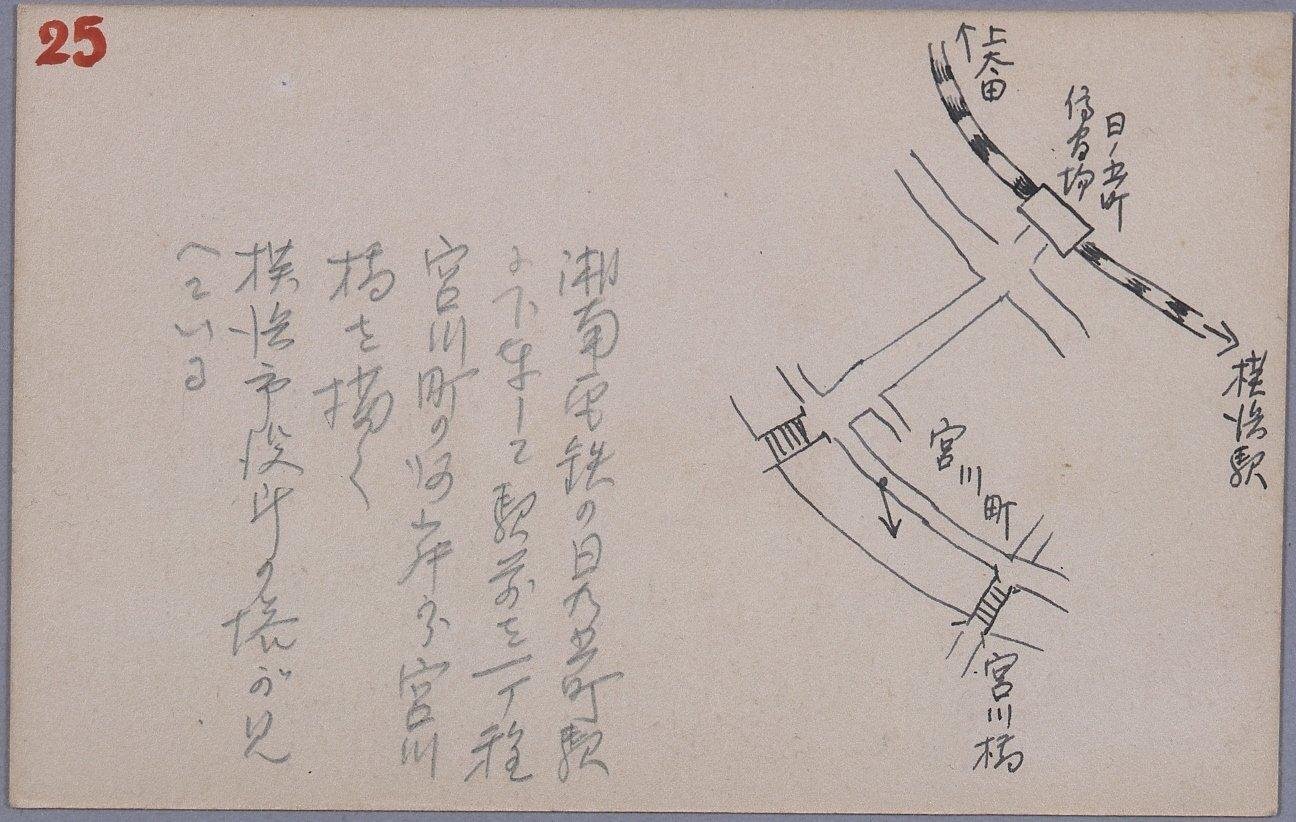 25
↑上大田
日ノ出町
停車場
横浜駅
宮川町
宮川橋
湘南電鉄の日乃出町駅
に下車して駅前を一丁程
宮川町の河岸から宮川
橋を描く
横浜市役所の塔が見
へている